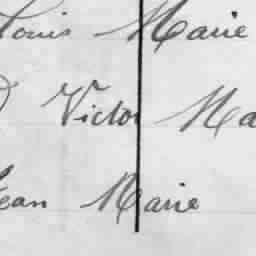 Louis Marie
Victor Ma
Jean Marie